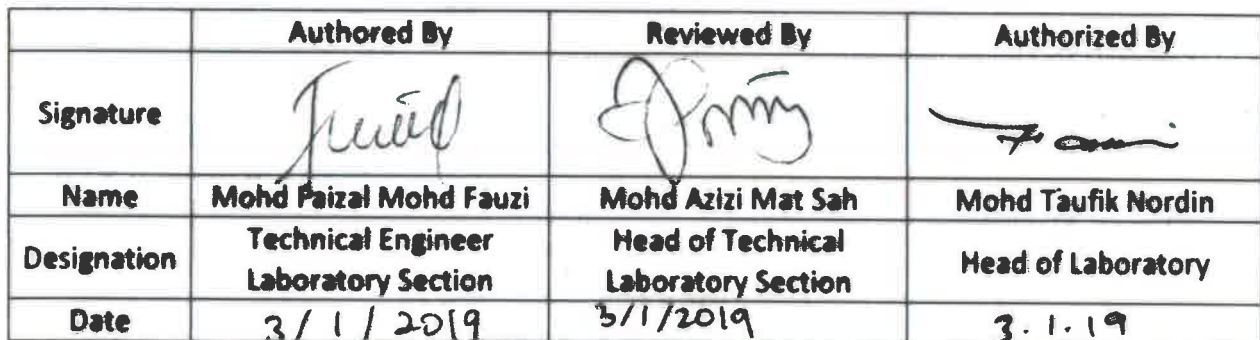 Authored By Reviewed By Authorized By
Signature
Name Mohd Faizal Mohd Fauzi Mohd Azizi Mat Sah Mohd Taufik Nordin
Designation Technical Engineer Laboratory Section Head of Technical Laboratory Section Head of Laboratory
Date 3/1/2019 3/1/2019 3.1.19